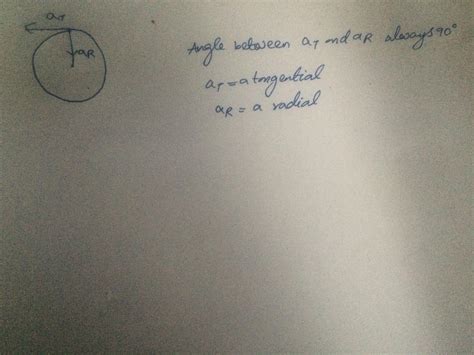 aT
aR
Angle between aT and aR always 90°
aT = a tangential
aR = a radial